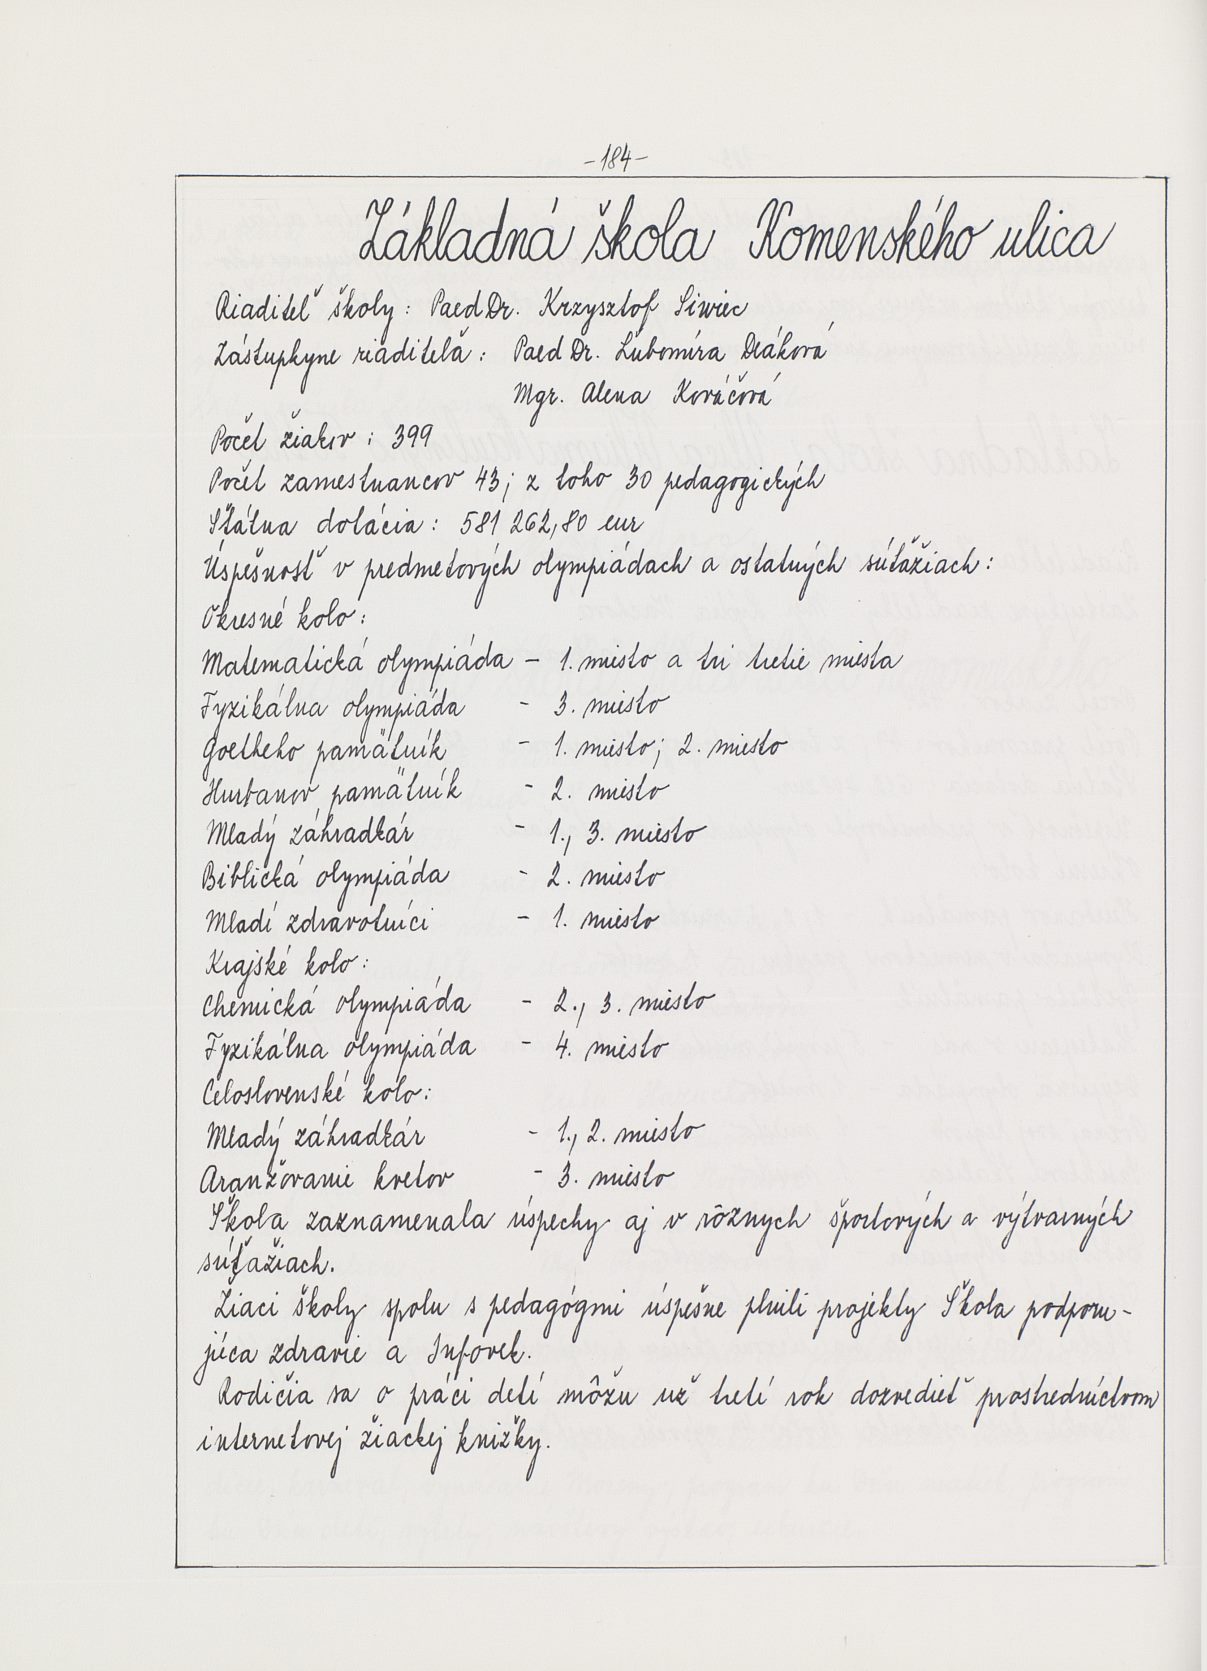 -184-
Základná škola Komenského ulica
Riaditeľ školy: PaedDr. Krzysztof Siwiec
Zástupkyne riaditeľa: PaedDr. Ľubomíra Deáková
Mgr. Alena Kováčová
Počet žiakov: 399
Počet zamestnancov 43; z toho 30 pedagogických
Štátna dotácia: 581 262,80 eur
Úspešnosť v predmetových olympiádach a ostatných súťažiach:
Okresné kolo:
Matematická olympiáda - 1. miesto a tri tretie miesta
Fyzikálna olympiáda - 3. miesto
Goetheho pamätník - 1. miesto; 2. miesto
Hurbanov pamätník - 2. miesto
Mladý záhradkár - 1., 3. miesto
Biblická olympiáda - 2. miesto
Mladí zdravotníci - 1. miesto
Krajské kolo:
Chemická olympiáda - 2., 3. miesto
Fyzikálna olympiáda - 4. miesto
Celoslovenské kolo:
Mladý záhradkár - 1., 2. miesto
Aranžovanie kvetov - 3. miesto
Škola zaznamenala úspechy aj v rôznych športových a výtvarných
súťažiach.
Žiaci školy spolu s pedagógmi úspešne plnili projekty Škola podporu-
júca zdravie a Infovek.
Rodičia sa o práci detí môžu už tretí rok dozvedieť prostredníctvom
internetovej žiackej knižky.